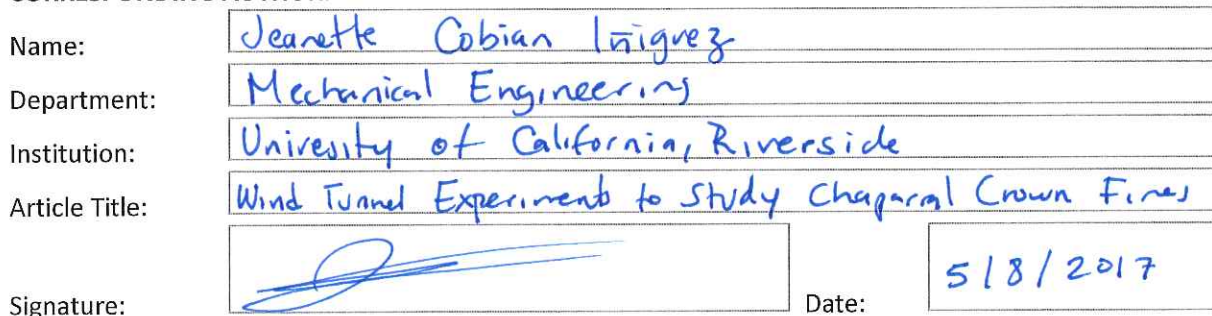 CORRESPONDING AUTHOR:
Name: Jeanette Cobian Iñiguez
Department: Mechanical Engineering
Institution: University of California, Riverside
Article Title: Wind Tunnel Experiments to Study Chaparral Crown Fires
Signature: Date: 5/8/2017